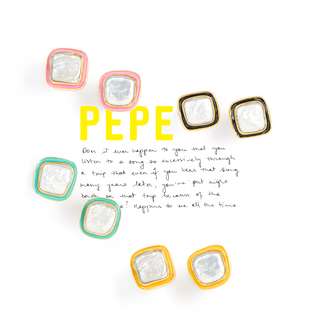 PEPE
Does it ever happen to you that you
listen to a song so excessively through
a trip that even if you hear that song
many years later, you're put right
back on that trip because of the
? Happens to me all the time.